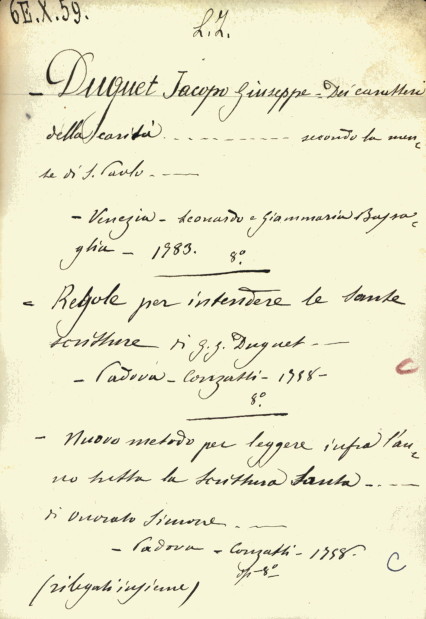 6E.X.59.
L.Z.
- Duguet Jacopo Giuseppe - Dei caratteri
della carità - - - - - - - secondo la men-
te di S. Paolo - - -
- Venezia - Leonardo e Giammaria Bassa-
glia - 1783. 8.°
= Regole per intendere le Sante
scritture di G. G. Duguet - -
- Padova - Conzatti - 1758 -
8.°
- Nuovo metodo per leggere infra l'an-
no tutta la Scrittura Santa - . - -
di Onorato Simone - - -
- Padova - Conzatti - 1758.
8.°
(rilegati insieme)
C
C